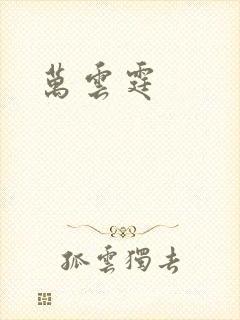 萬雲霆
孤雲獨去